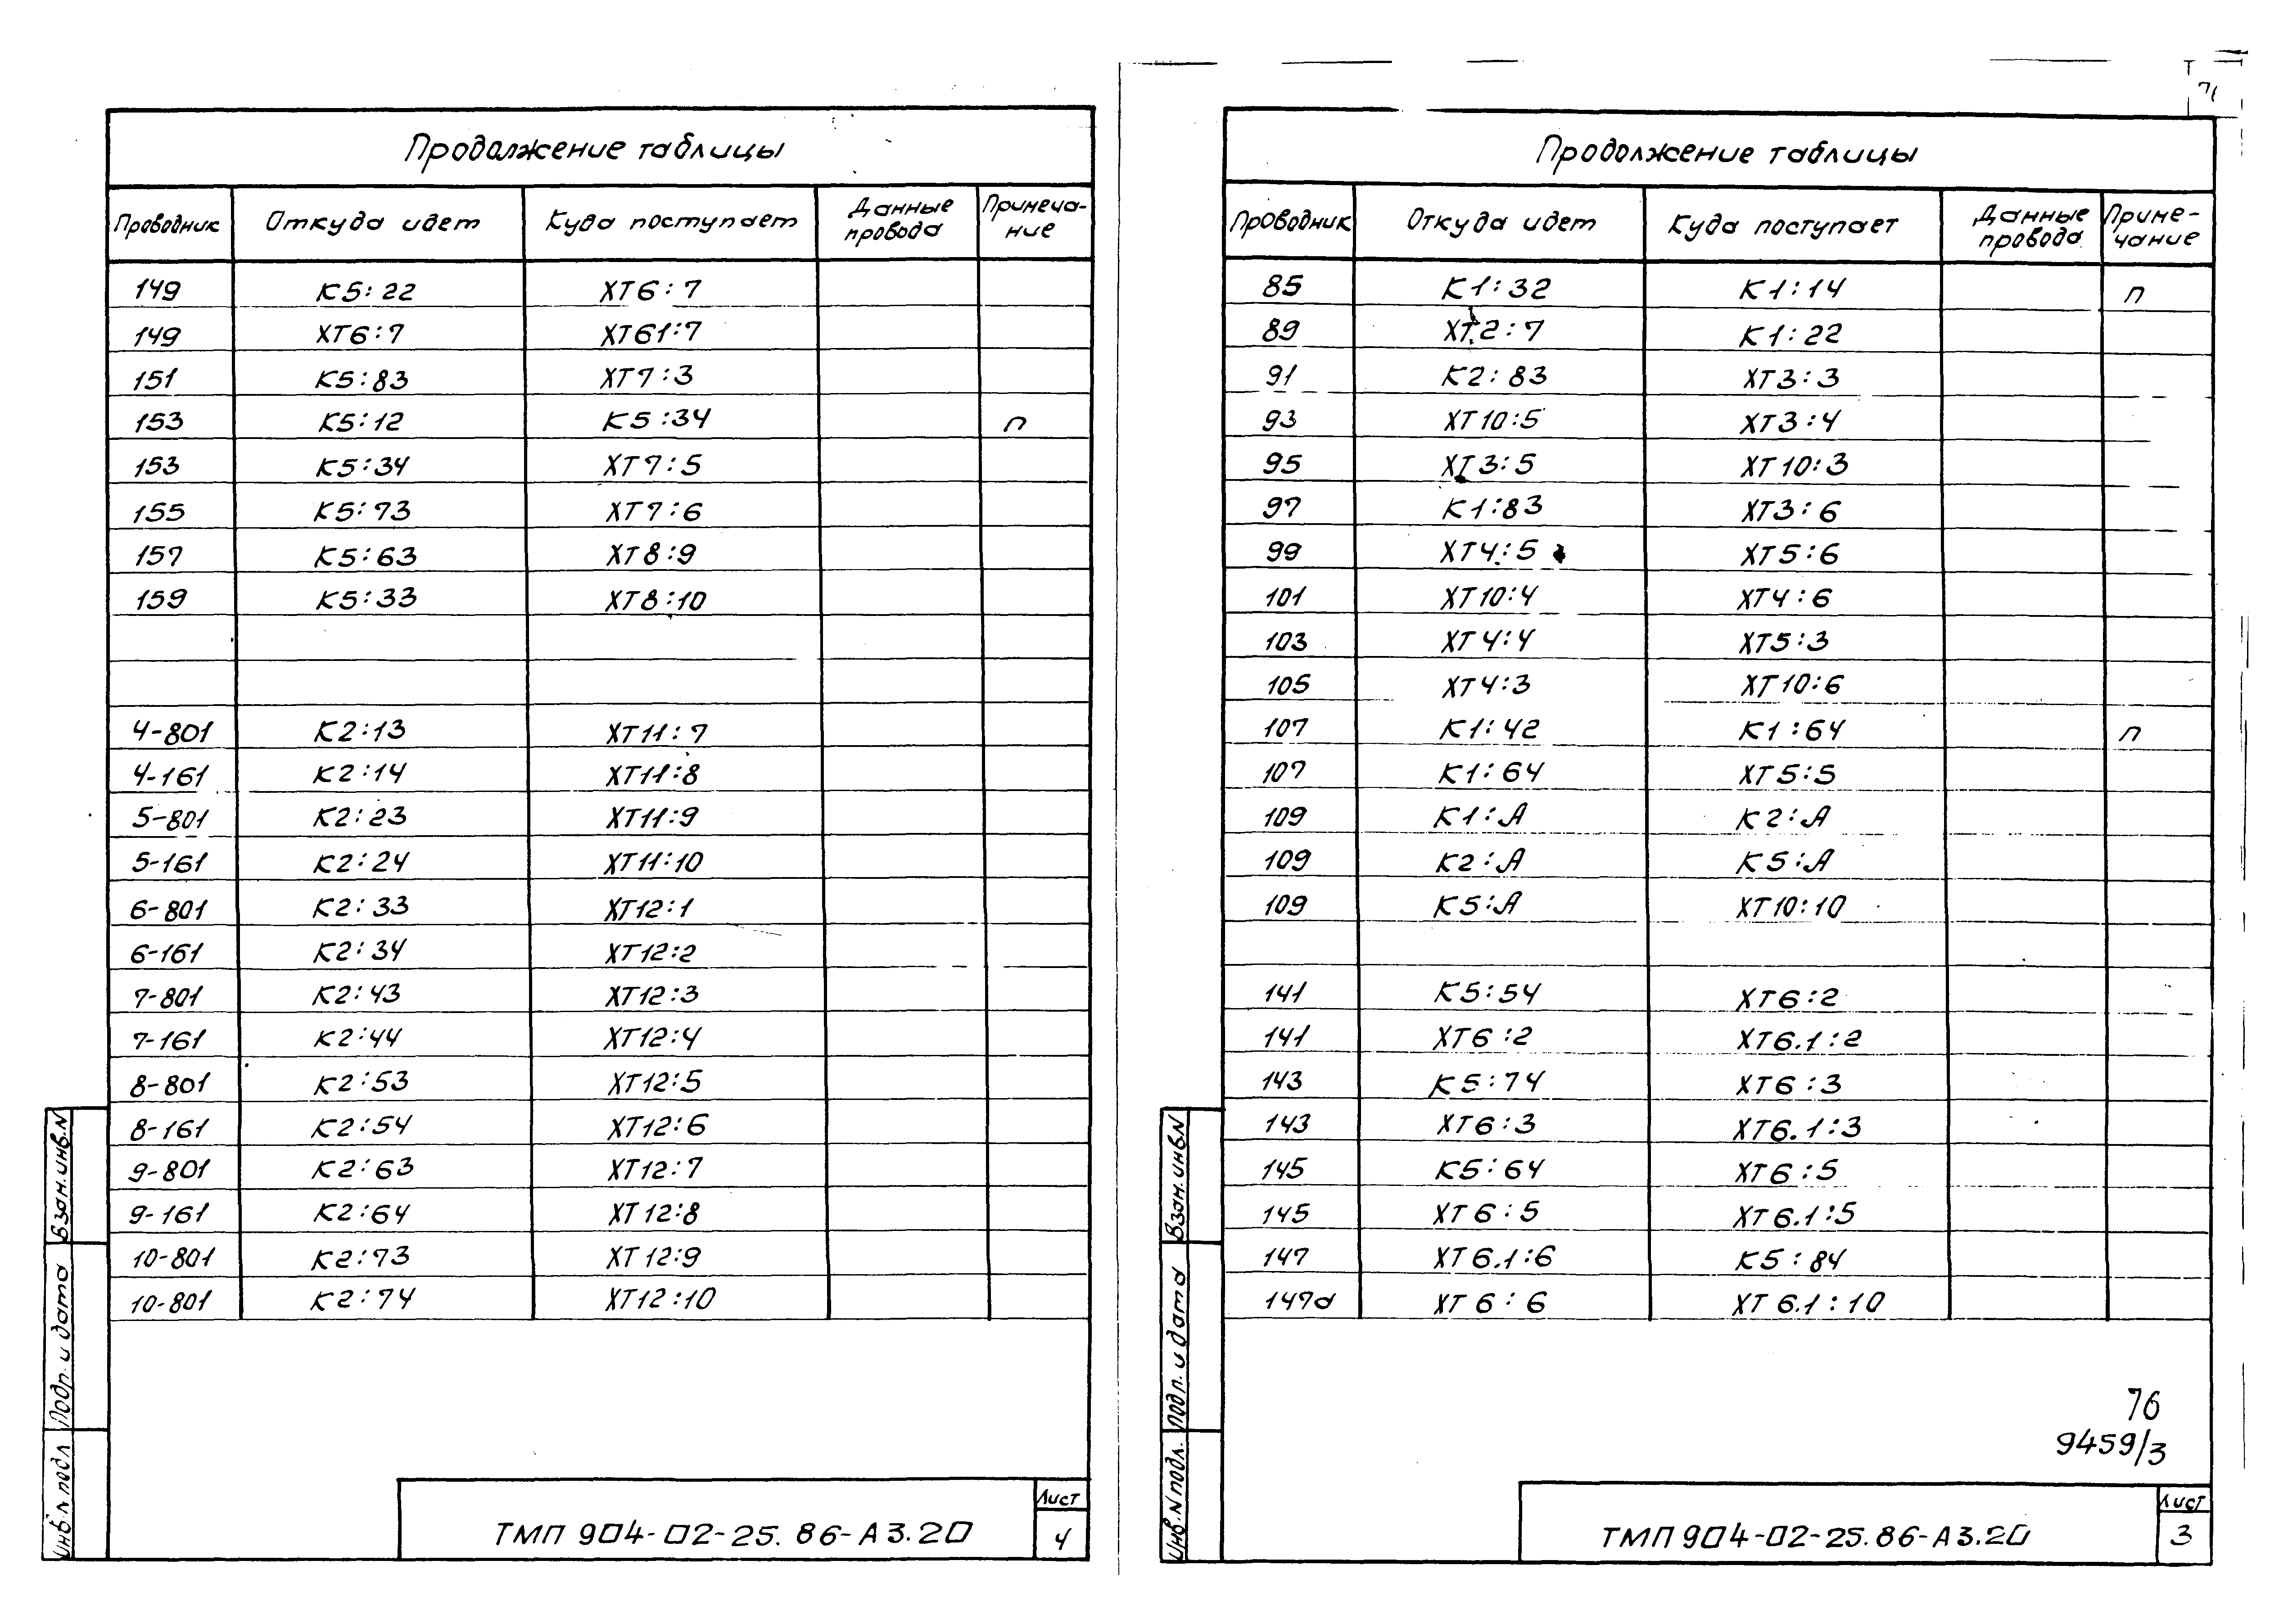 Продолжение таблицы
Проводник Откуда идет Куда поступает Данные провода Примеча-ние
149 К5:22 ХТ6:7
149 ХТ6:7 ХТ61:7
151 К5:83 ХТ7:3
153 К5:12 К5:34 п
153 К5:34 ХТ7:5
155 К5:73 ХТ7:6
157 К5:63 ХТ8:9
159 К5:33 ХТ8:10
4-801 К2:13 ХТ11:7
4-161 К2:14 ХТ11:8
5-801 К2:23 ХТ11:9
5-161 К2:24 ХТ11:10
6-801 К2:33 ХТ12:1
6-161 К2:34 ХТ12:2
7-801 К2:43 ХТ12:3
7-161 К2:44 ХТ12:4
8-801 К2:53 ХТ12:5
8-161 К2:54 ХТ12:6
9-801 К2:63 ХТ12:7
9-161 К2:64 ХТ12:8
10-801 К2:73 ХТ12:9
10-801 К2:74 ХТ12:10
Взам.инв.N
Подр. и дата
Инв.N подл
ТМП 904-02-25.86-А3.20
Лист
4
71
Продолжение таблицы
Проводник Откуда идет Куда поступает Данные провода Приме-чание
85 К1:32 К1:14 п
89 ХТ2:7 К1:22
91 К2:83 ХТ3:3
93 ХТ10:5 ХТ3:4
95 ХТ3:5 ХТ10:3
97 К1:83 ХТ3:6
99 ХТ4:5 ХТ5:6
101 ХТ10:4 ХТ4:6
103 ХТ4:4 ХТ5:3
105 ХТ4:3 ХТ10:6
107 К1:42 К1:64 п
107 К1:64 ХТ5:5
109 К1:А К2:А
109 К2:А К5:А
109 К5:А ХТ10:10
141 К5:54 ХТ6:2
141 ХТ6:2 ХТ6.1:2
143 К5:74 ХТ6:3
143 ХТ6:3 ХТ6.1:3
145 К5:64 ХТ6:5
145 ХТ6:5 ХТ6.1:5
147 ХТ6.1:6 К5:84
147а ХТ6:6 ХТ6.1:10
Взам.инв.N
Подп. и дата
Инв.N подл.
76
9459/3
ТМП 904-02-25.86-А3.20
Лист
3